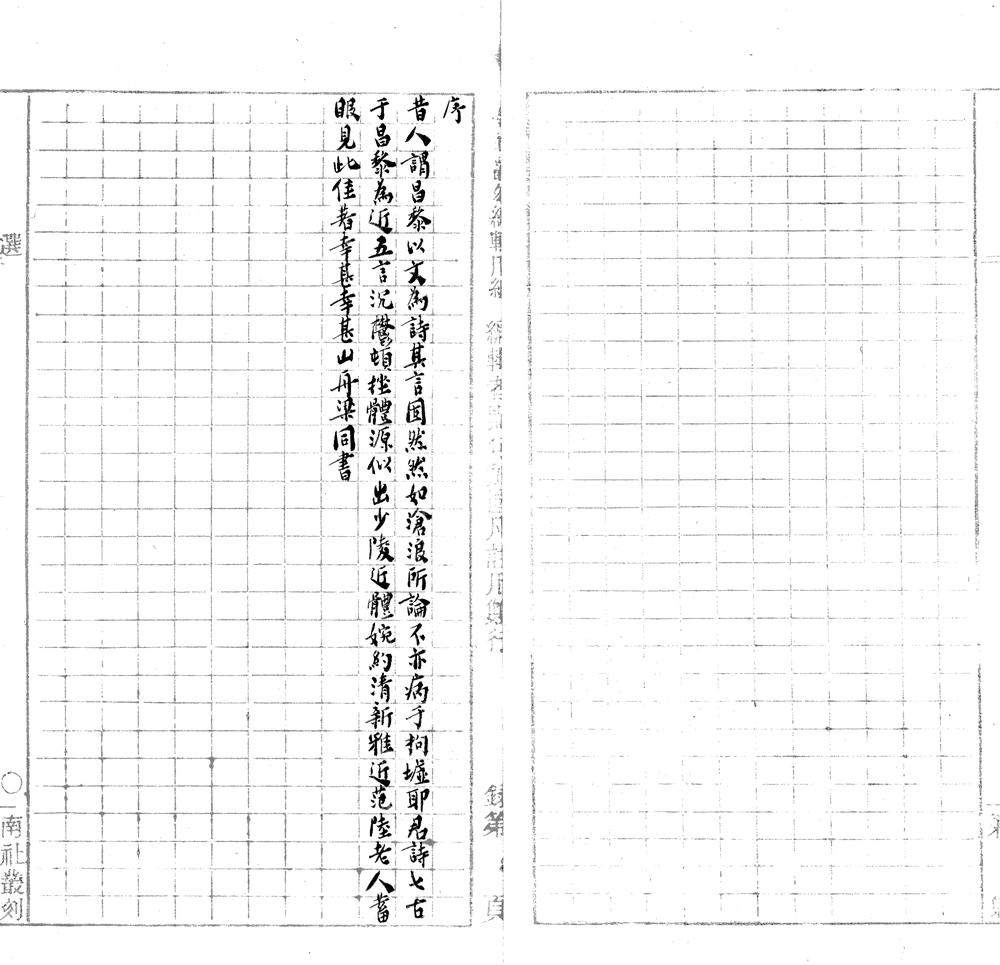 序
昔人謂昌黎以文為詩其言固然然如滄浪所論不亦病于拘墟耶君詩七古
于昌黎為近五言沉鬱頓挫體源似出少陵近體婉約清新雅近范陸老人蓄
眼見此佳著幸甚幸甚山舟梁同書
選
南社叢刻